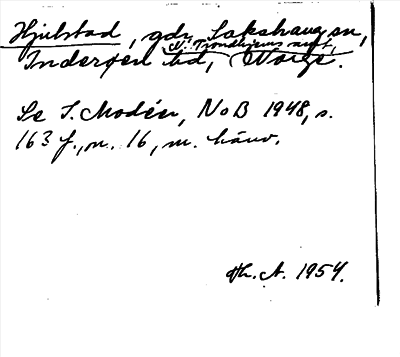 Hjulstad, gdr, Sakshaug sn,
N. Trondhjems amt,
Inderøen hd, Norge.
Se I. Modéer, NoB 1948, s.
163 f., n. 16, m. hänv.
Th. A. 1954.